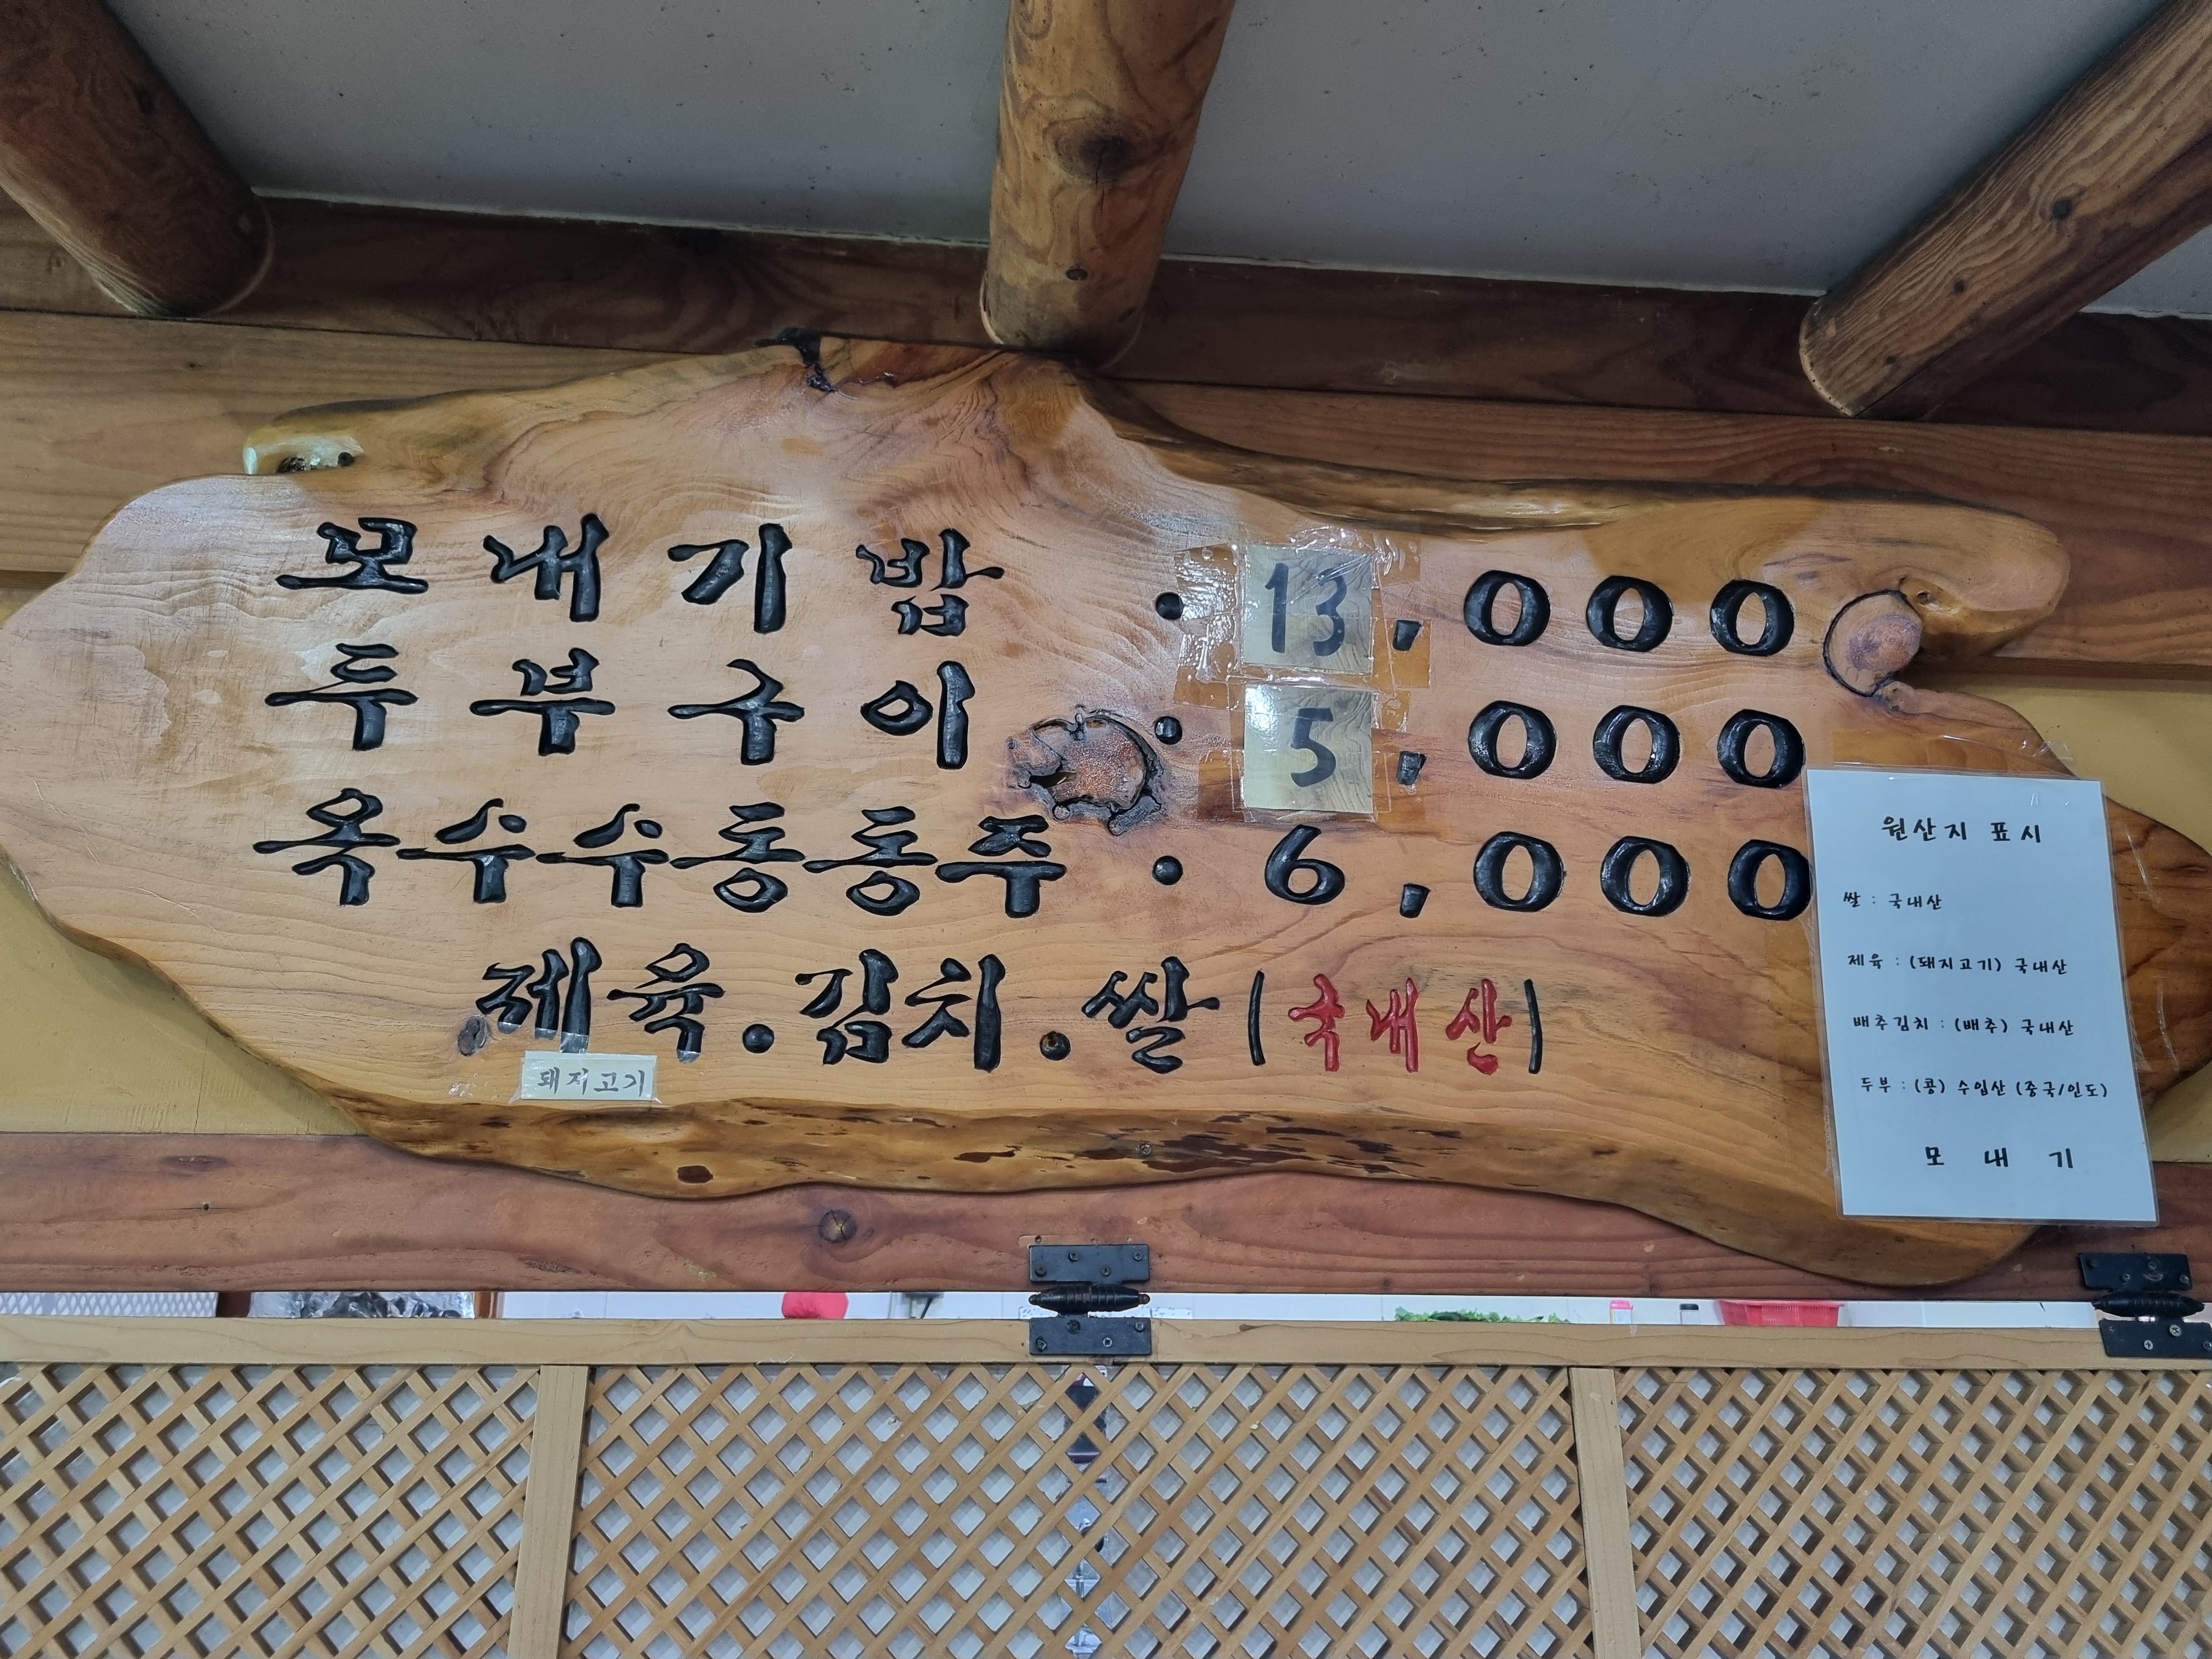 모내기밥 : 13,000
두부구이 : 5,000
옥수수동동주 : 6,000
제육.김치.쌀(국내산)
돼지고기
원산지 표시
쌀 : 국내산
제육 : (돼지고기) 국내산
배추김치 : (배추) 국내산
두부 : (콩) 수입산 (중국/인도)
모 내 기